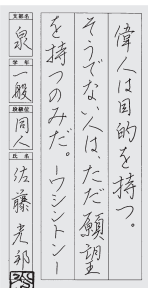 偉人は目的を持つ。
そうでない人は、ただ願望
を持つのみだ。ーワシントンー
支部名
泉
学年
一般
段級位
同人
氏名
佐藤光郎